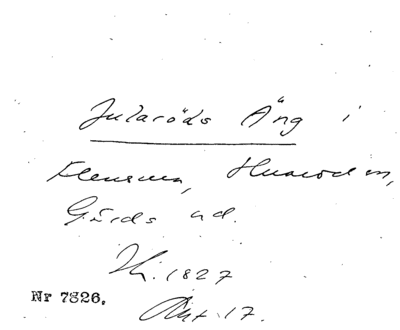 Jularöds Äng i
Huaröd sn,
Gärds hd.
1827
Nr 7326.
Akt 17.